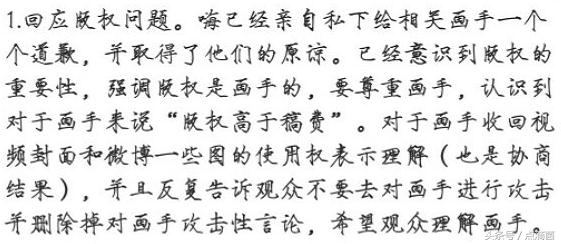 1.回应版权问题。嗨已经亲自私下给相关画手一个
个道歉，并取得了他们的原谅。已经意识到版权的
重要性，强调版权是画手的，要尊重画手，认识到
对于画手来说“版权高于稿费”。对于画手收回视
频封面和微博一些图的使用权表示理解（也是协商
结果），并且反复告诉观众不要去对画手进行攻击
并删除掉对画手攻击性言论，希望观众理解画手。
头条号 / 点滴圈